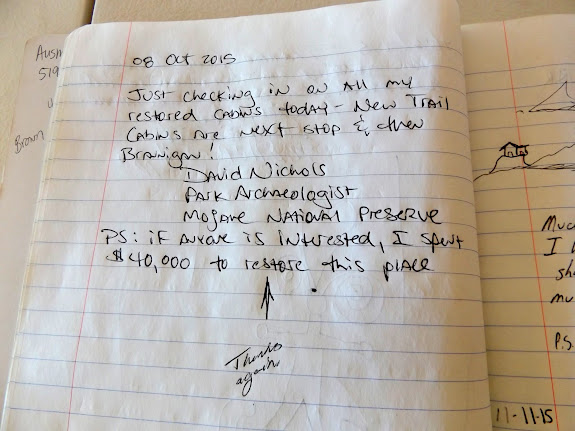 08 Oct 2015
Just checking in on all my
restored cabins today - New Trail
Cabins are next stop & then
Branigan!
David Nichols
Park Archaeologist
Mojave National Preserve
PS: if anyone is interested, I spent
$40,000 to restore this place
Thanks
again
Ausm
519
Brown
Much
I
sh
mu
P.S.
11-11-15